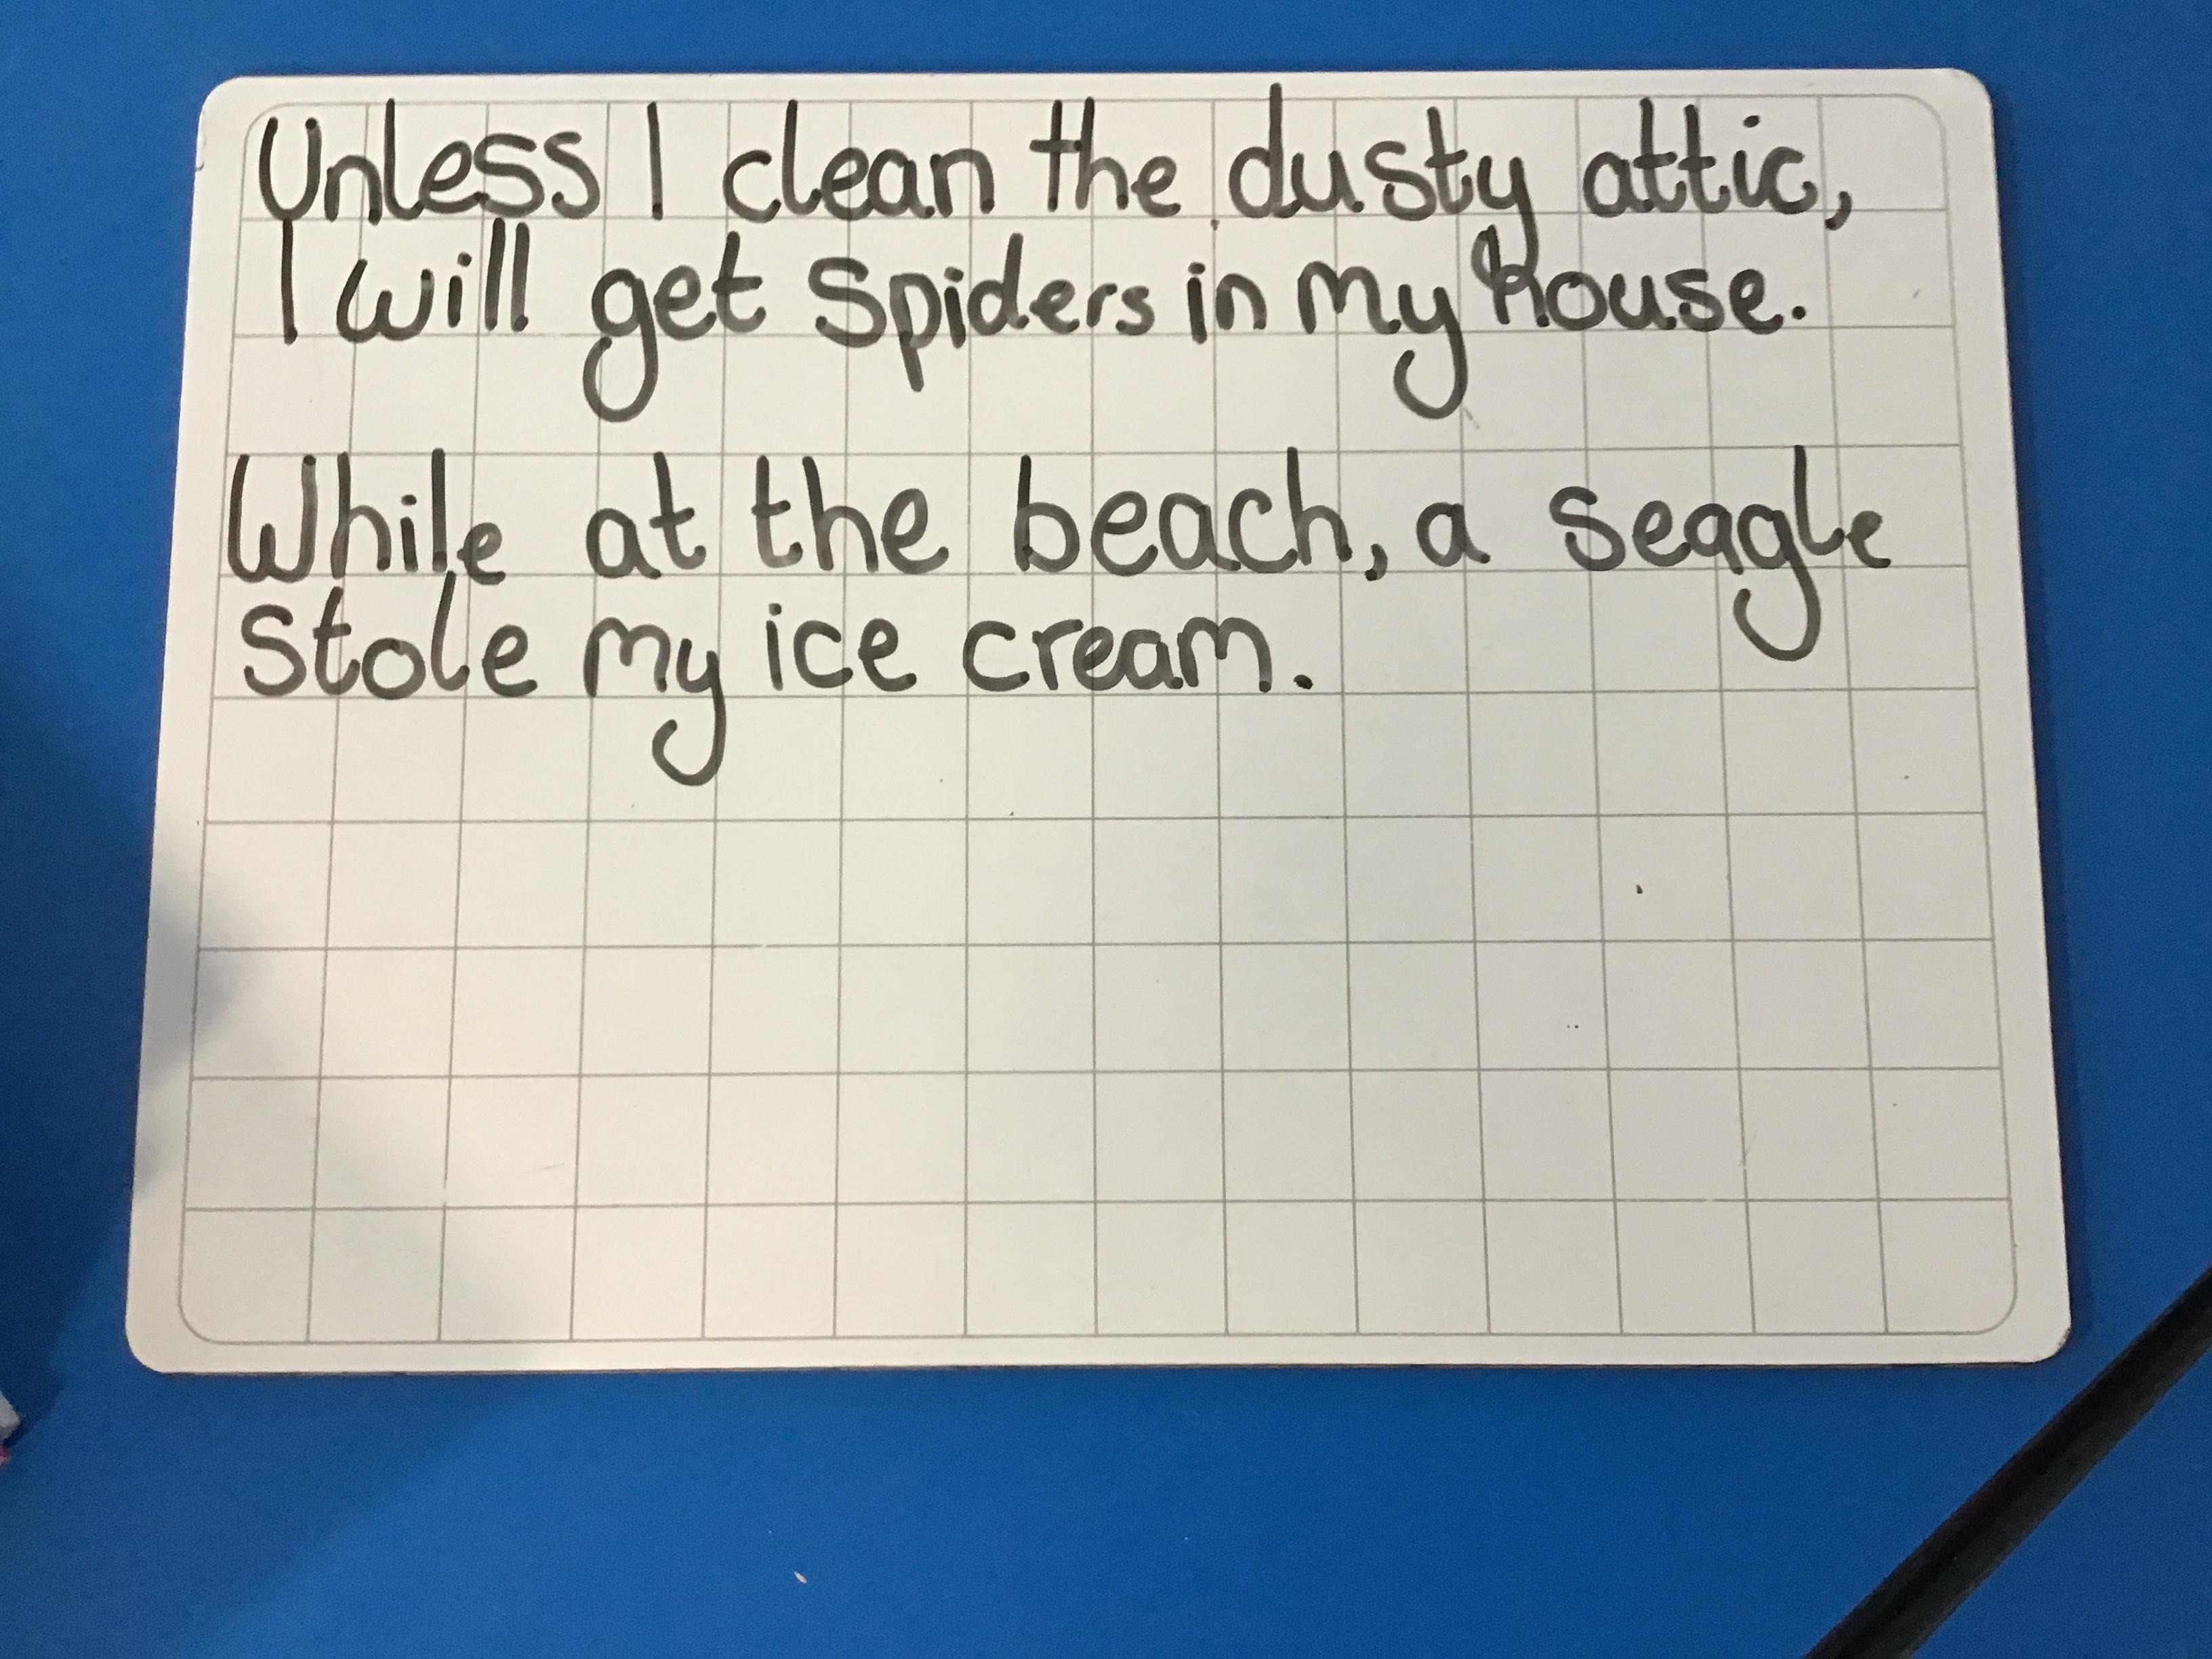 Unless I clean the dusty attic,
I will get spiders in my house.
While at the beach, a seagle
stole my ice cream.